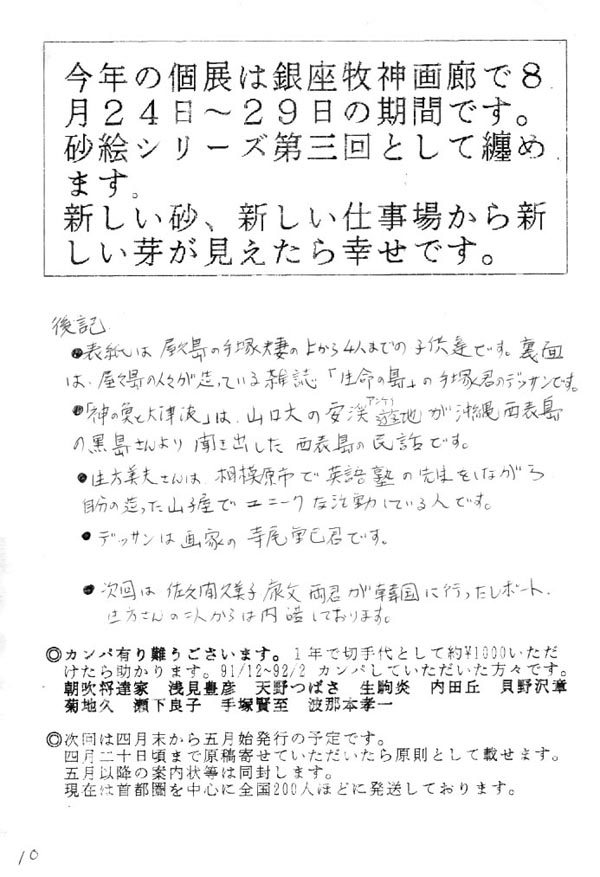 今年の個展は銀座牧神画廊で８
月２４日～２９日の期間です。
砂絵シリーズ第三回として纏め
ます。
新しい砂、新しい仕事場から新
しい芽が見えたら幸せです。
後記
●表紙は屋久島の手塚夫妻の上から4人までの子供達です。裏面
は、屋久島の人々が造っている雑誌「生命の島」の手塚君のデッサンです。
●「神の魚と大津波」は、山口大の安渓遊地が沖縄西表島
アンケイ
の黒島さんより聞き出した西表島の民話です。
●美夫さんは、相模原市で英語塾の先生をしながら
自分の造った山子屋でユニークな活動している人です。
●デッサンは画家の寺尾君です。
●次回は佐久間久美子康文両君が韓国に行ったレポート、
さんの二人からは内諾しております。
◎カンパ有り難うございます。１年で切手代として約¥1000いただ
けたら助かります。91/12~92/2 カンパしていただいた方々です。
朝吹将達家 浅見豊彦 天野つばさ 生駒炎 内田丘 貝野沢章
菊地久 瀬下良子 手塚賢至 波那本孝一
◎次回は四月末から五月始発行の予定です。
四月二十日頃まで原稿寄せていただいたら原則として載せます。
五月以降の案内状等は同封します。
現在は首都圏を中心に全国200人ほどに発送しております。
10